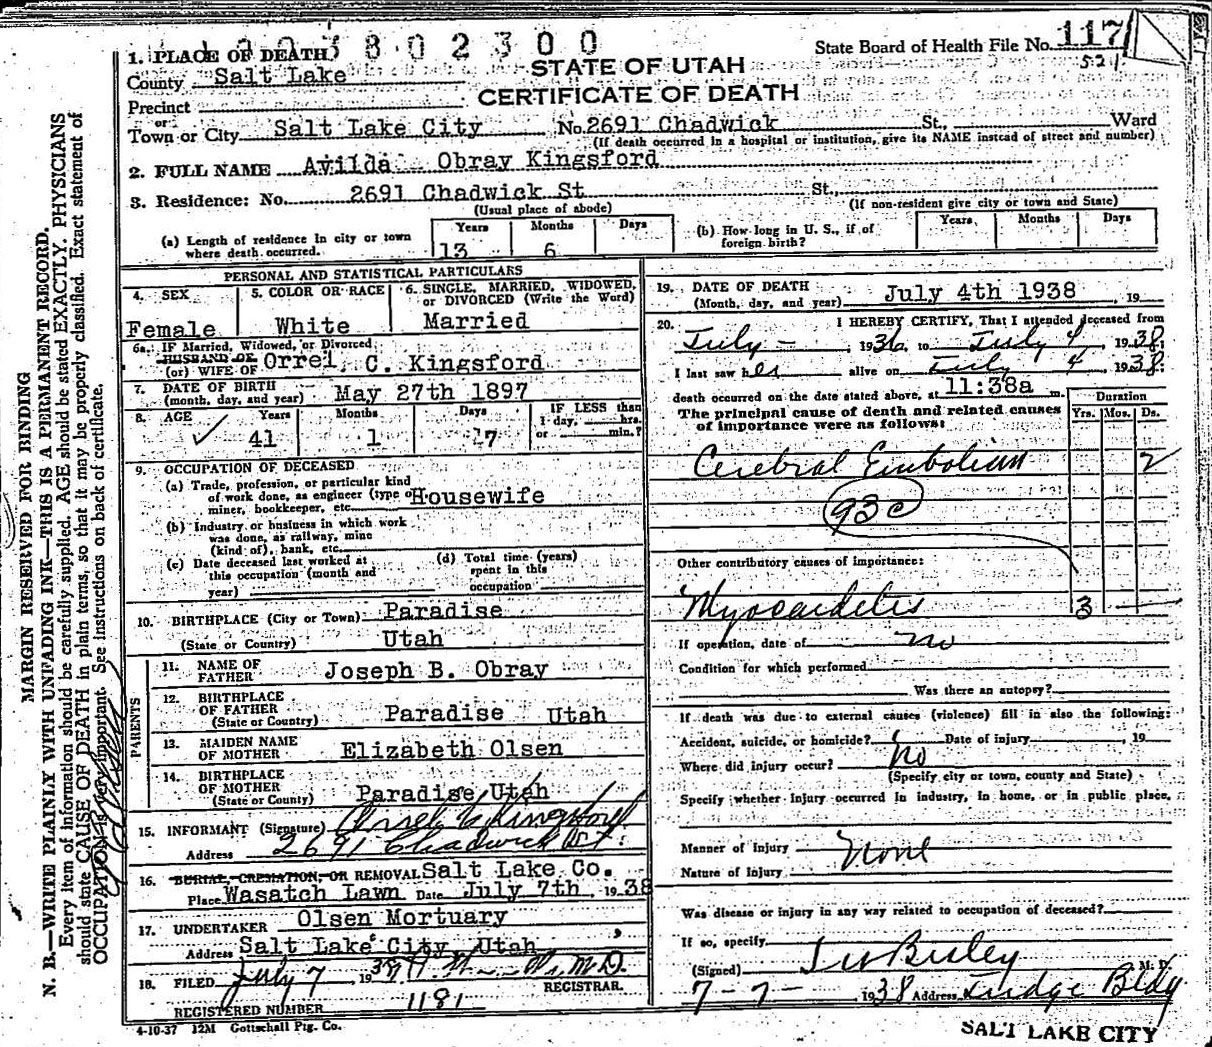 1003802300
State Board of Health File No. 117
521
STATE OF UTAH
CERTIFICATE OF DEATH
1. PLACE OF DEATH
County Salt Lake
Precinct
or
Town or City Salt Lake City No. 2691 Chadwick St., Ward
(If death occurred in a hospital or institution, give its NAME instead of street and number)
2. FULL NAME Avilda Obray Kingsford
3. Residence: No. 2691 Chadwick St St.,
(Usual place of abode) (If non-resident give city or town and State)
(a) Length of residence in city or town where death occurred. Years 13 Months 6 Days
(b) How long in U. S., if of foreign birth? Years Months Days
PERSONAL AND STATISTICAL PARTICULARS
4. SEX Female
5. COLOR OR RACE White
6. SINGLE, MARRIED, WIDOWED, or DIVORCED (Write the Word) Married
6a. IF Married, Widowed, or Divorced
HUSBAND OF
(or) WIFE OF Orrel C. Kingsford
7. DATE OF BIRTH
(month, day, and year) May 27th 1897
8. AGE Years 41 Months 1 Days 7
IF LESS than
1 day, hrs.
or min.?
9. OCCUPATION OF DECEASED
(a) Trade, profession, or particular kind
of work done, as engineer (type of Housewife
miner, bookkeeper, etc.
(b) Industry or business in which work
was done, as railway, mine
(kind of), bank, etc.
(c) Date deceased last worked at
this occupation (month and
year)
(d) Total time (years)
spent in this
occupation
10. BIRTHPLACE (City or Town) Paradise
(State or Country) Utah
PARENTS
11. NAME OF FATHER Joseph B. Obray
12. BIRTHPLACE OF FATHER (State or Country) Paradise Utah
13. MAIDEN NAME OF MOTHER Elizabeth Olsen
14. BIRTHPLACE OF MOTHER (State or County) Paradise Utah
15. INFORMANT (Signature) Orrel C. Kingsford
Address 2691 Chadwick St.
16. BURIAL, CREMATION, OR REMOVAL Salt Lake Co.
Place Wasatch Lawn Date July 7th 1938
17. UNDERTAKER Olsen Mortuary
Address Salt Lake City, Utah
18. FILED July 7 1938 M.D.
REGISTRAR.
REGISTERED NUMBER 1181
4-10-37 12M Gottschall Ptg. Co.
19. DATE OF DEATH
(Month, day, and year) July 4th 1938, 19
20. I HEREBY CERTIFY, That I attended deceased from
July - 1936, to July 4, 1938.
I last saw her alive on July 4 1938.
death occurred on the date stated above, at 11:38a m.
The principal cause of death and related causes
of importance were as follows:
Duration
Yrs. Mos. Ds.
Cerebral Embolism 2
93c
Other contributory causes of importance:
Myocarditis 3
If operation, date of no
Condition for which performed
Was there an autopsy?
If death was due to external causes (violence) fill in also the following:
Accident, suicide, or homicide? Date of injury, 19
Where did injury occur? No
(Specify city or town, county and State)
Specify whether injury occurred in industry, in home, or in public place,
Manner of Injury None
Nature of Injury
Was disease or injury in any way related to occupation of deceased?
If so, specify
(Signed) M. D.
7-7- 1938 Address Judge Bldg
SALT LAKE CITY
MARGIN RESERVED FOR BINDING
N. B.—WRITE PLAINLY WITH UNFADING INK—THIS IS A PERMANENT RECORD.
Every item of information should be carefully supplied. AGE should be stated EXACTLY. PHYSICIANS
should state CAUSE OF DEATH in plain terms, so that it may be properly classified. Exact statement of
OCCUPATION is very important. See instructions on back of certificate.